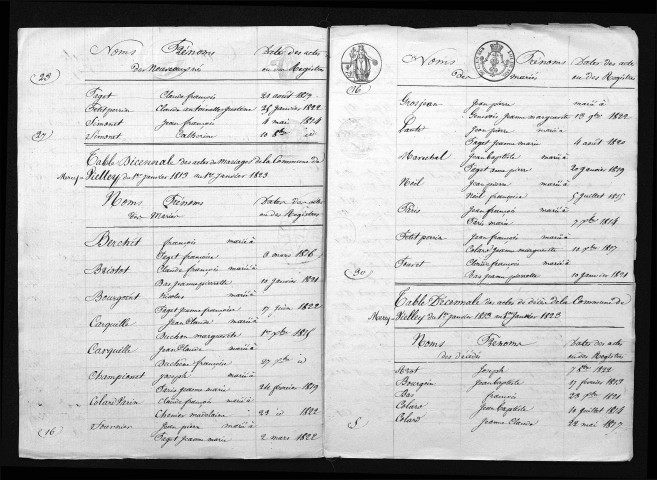 Noms Prénoms Dates des actes
des Nouveaux nés ou des Registres
23
Faget Claude françois 21 août 1819
Petitperrin Claudine antoinette 25 janvier 1822
Simonet Jean françois 4 mai 1814
Simonet Catherine 10 8bre id
27
Table Décennale des actes de Mariages de la Commune de
Merey-Vielley du 1er janvier 1813 au 1er janvier 1823
Noms Prénoms Dates des actes
des Mariés ou des Registres
Berchet françois marié à
Faget françoise 8 mars 1816
Briotot Claude françois marié à
Bas jeanne pierrette 10 janvier 1821
Bourgoint Nicolas marié à
Faget jeanne françoise 17 juin 1822
Carquille Jean Claude marié à
Bachon marguerite 1er xbre 1815
Carquille Jean Claude marié à
Bachon françoise 27 xbre id
Championet joseph marié à
Paris jeanne marie 24 février 1819
Colard Varin Claude françois marié à
Chenier madelaine 23 id 1822
Fournier Jean pierre marié à
16 Faget jeanne marie 2 mars 1822
Noms Prénoms Dates des actes
des mariés ou des Registres
16
Grosjean Jean pierre marié à
Genevois jeanne marguerite 13 9bre 1822
Jean pierre marié à
Faget jeanne marie 4 août 1820
Marechal Jean baptiste marié à
Faget anne pierre 20 janvier 1819
Noël Jean pierre marié à
Noël françoise 5 juillet 1815
Pâris Jean françois marié à
Paris marie 7 xbre 1814
Petit perrin Jean françois marié à
Colard jeanne marguerite 10 xbre 1817
Claude françois marié à
30 Bas jeanne pierrette 10 janvier 1821
Table Décennale des actes de décès de la Commune de
Merey-Vielley du 1er janvier 1813 au 1er janvier 1823
Noms Prénoms Dates des actes
des décédés ou des Registres
Joseph 7 8bre 1822
Bourgoin Jean baptiste 17 février 1813
Bas françois 28 xbre 1821
Colard Jean baptiste 10 juillet 1814
5 Colard Jeanne Claude 22 mai 1817